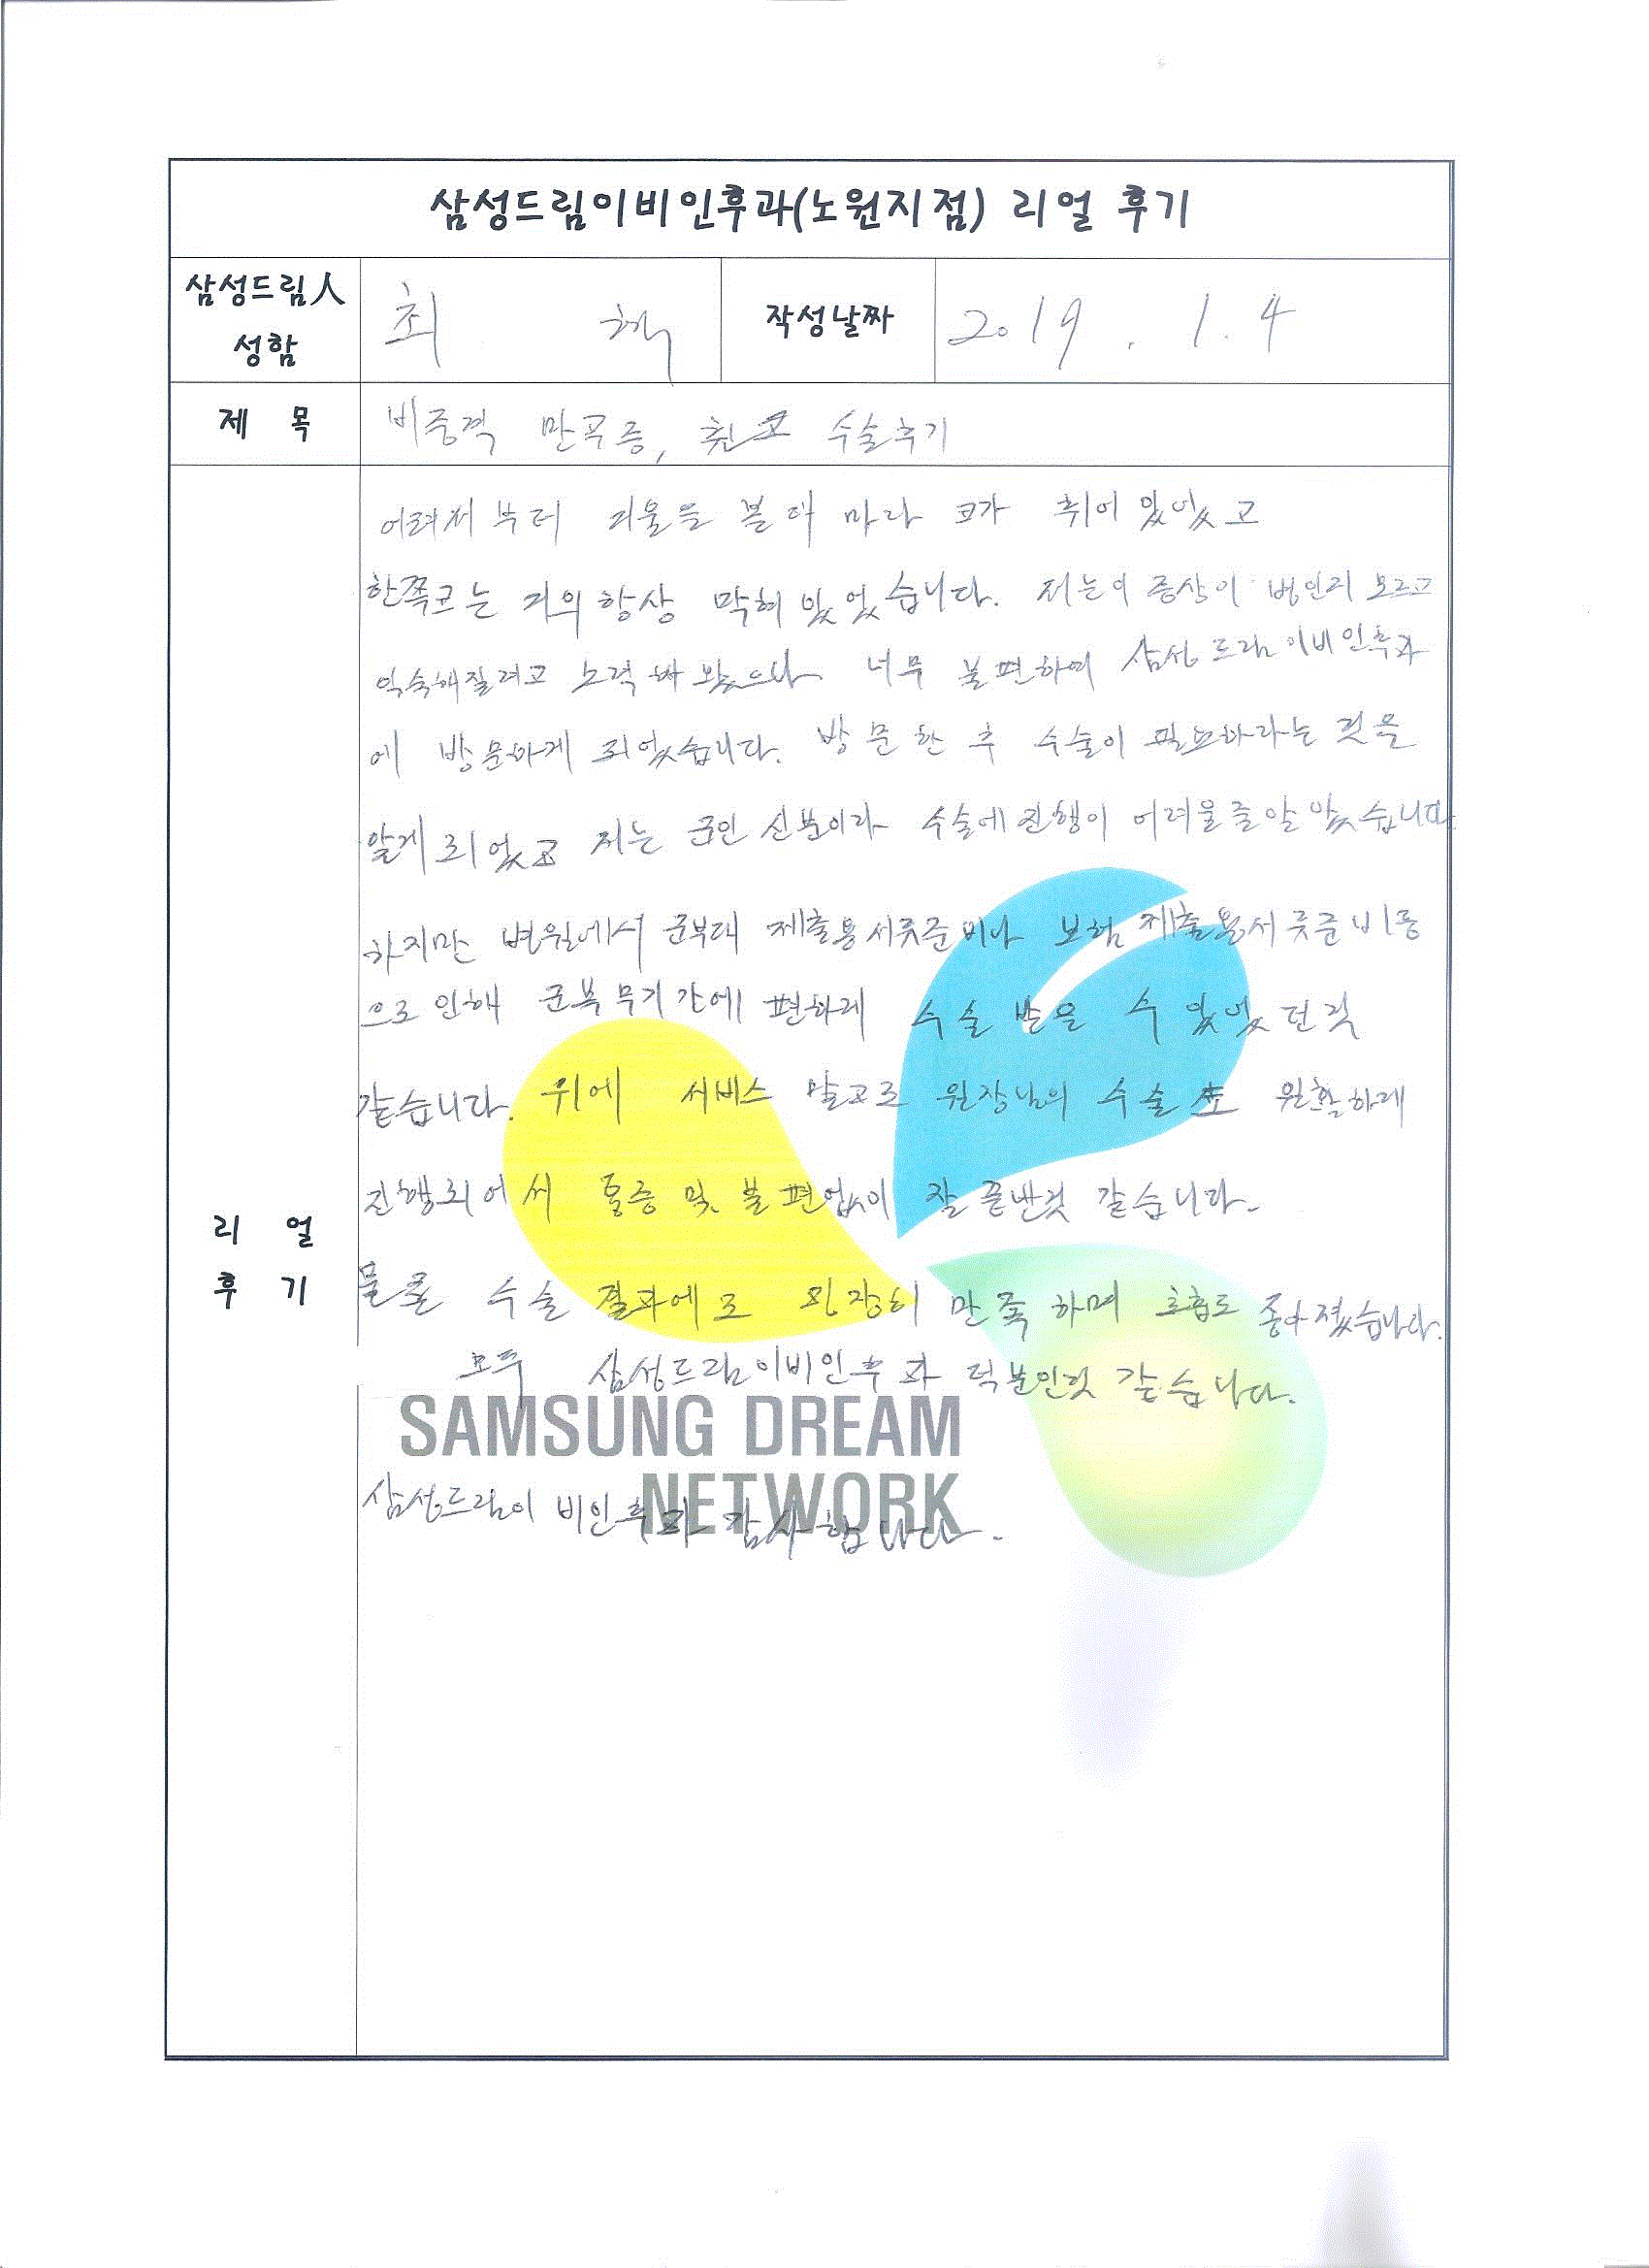 삼성드림이비인후과(노원지점) 리얼 후기
삼성드림人 성함 최 혁 작성날짜 2019. 1. 4
제 목 비중격 만곡증, 휜코 수술후기
어려서 부터 거울을 볼때 마다 코가 휘어 있었고
한쪽코는 거의 항상 막혀 있었습니다. 저는 이 증상이 병인지 모르고
익숙해질려고 노력 해 봤으나 너무 불편하여 삼성드림이비인후과
에 방문하게 되었습니다. 방문한 후 수술이 필요하라는 것을
알게 되었고 저는 군인 신분이라 수술에 진행이 어려울줄알 았습니다
하지만 병원에서 군부대 제출용서류준비나 보험 제출용서류준비등
으로 인해 군복무기간에 편하게 수술 받을 수 있었던것
같습니다. 위에 서비스 말고도 원장님의 수술 또 원활하게
진행되어서 통증 및 불편없이 잘 끝낸것 같습니다.
리 얼
후 기
물론 수술 결과에도 굉장히 만족하며 호흡도 좋아졌습니다.
모두 삼성드림이비인후과 덕분인것 같습니다.
SAMSUNG DREAM
NETWORK
삼성드림이비인후과 감사합니다.